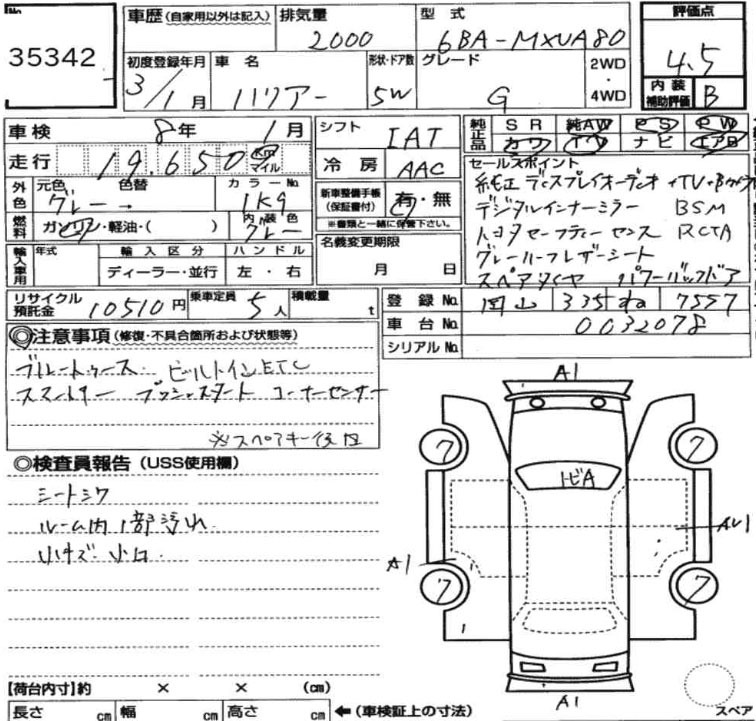 No.
35342
車歴 (自家用以外は記入)
排気量
2000
型式
6BA-MXUA80
評価点
4.5
内装補助評価
B
初度登録年月
3/1月
車名
ハリアー
形状・ドア数
5W
グレード
G
2WD
・
4WD
車検
8年 1月
走行
19,650
km
マイル
外色
元色
グレー
色替
→
カラーNo.
1K9
燃料
ガソリン・軽油・( )
内装色
グレー
輸入車用
年式
輸入区分
ディーラー・並行
ハンドル
左・右
シフト
IAT
冷房
AAC
新車整備手帳
(保証書付)
有・無
※書類と一緒に保管下さい。
名義変更期限
月 日
純正品
SR 純AW PS PW
カワ TV ナビ エアB
セールスポイント
純正ディスプレイオーディオ +TV+Bカメラ
デジタルインナーミラー BSM
トヨタセーフティーセンス RCTA
グレーハーフレザーシート
スペアタイヤ パワーバックドア
リサイクル預託金
10510円
乗車定員
5人
積載量
t
登録No.
岡山 335 7557
車台No.
0032078
シリアルNo.
◎注意事項 (修復・不具合箇所および状態等)
ブルートゥース ビルトインETC
スマートキー プッシュスタート コーナーセンサー
※スペアキー後日
◎検査員報告 (USS使用欄)
シートシワ
ルーム内1部汚れ
小キズ 小凹
A1
トビA
7
7
A1
AU1
7
7
A1
スペア
【荷台内寸】約 × × (cm)
長さ cm 幅 cm 高さ cm ←(車検証上の寸法)